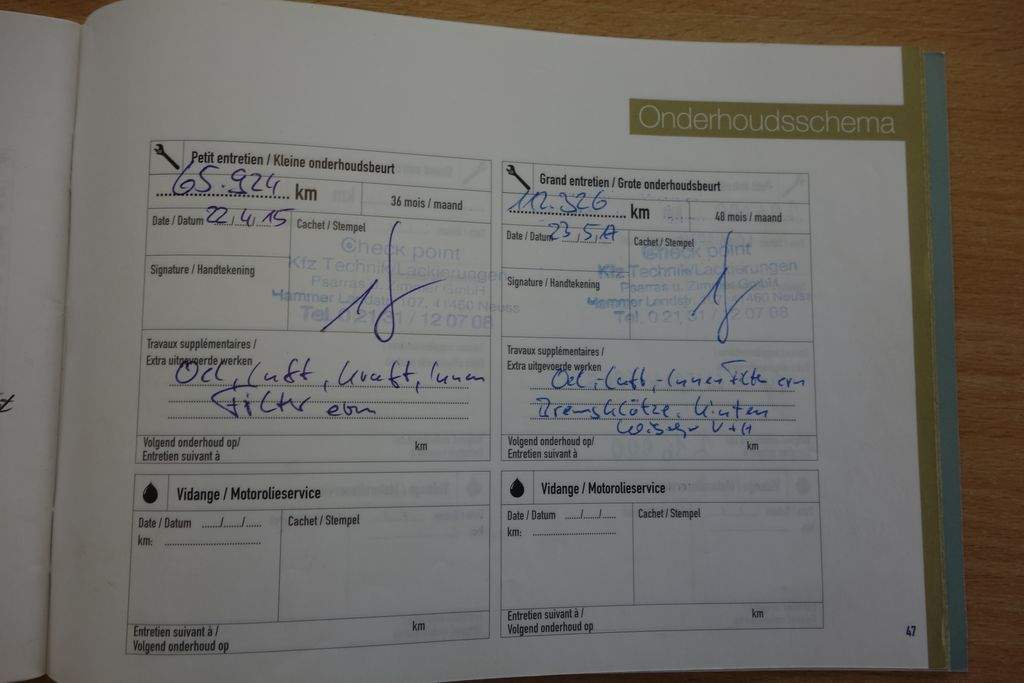 Onderhoudsschema
Petit entretien / Kleine onderhoudsbeurt
65.924 km
36 mois / maand
Date / Datum 22/4/15
Cachet / Stempel
Check point
Kfz Technik/Lackierungen
Signature / Handtekening
Psarras u. Zimmer GmbH
Hammer Landstr. 107, 41460 Neuss
Tel. 0 21 31 / 12 07 08
Travaux supplémentaires /
Extra uitgevoerde werken
Oel, Luft, Kraft, Innen
Filter ern
Volgend onderhoud op/
Entretien suivant à
km
Grand entretien / Grote onderhoudsbeurt
112.326 km
48 mois / maand
Date / Datum 23,5,17
Cachet / Stempel
Check point
Kfz Technik/Lackierungen
Signature / Handtekening
Psarras u. Zimmer GmbH
Hammer Landstr. 41460 Neuss
Tel. 0 21 31 / 12 07 08
Travaux supplémentaires /
Extra uitgevoerde werken
Oel,-Luft,-Innen Filter ern
Bremsklötze hinten
Wischer V+H
Volgend onderhoud op/
Entretien suivant à
km
Vidange / Motorolieservice
Date / Datum ....../....../......
Cachet / Stempel
km:
Entretien suivant à /
Volgend onderhoud op
km
Vidange / Motorolieservice
Date / Datum ....../....../......
Cachet / Stempel
km:
Entretien suivant à /
Volgend onderhoud op
km
47